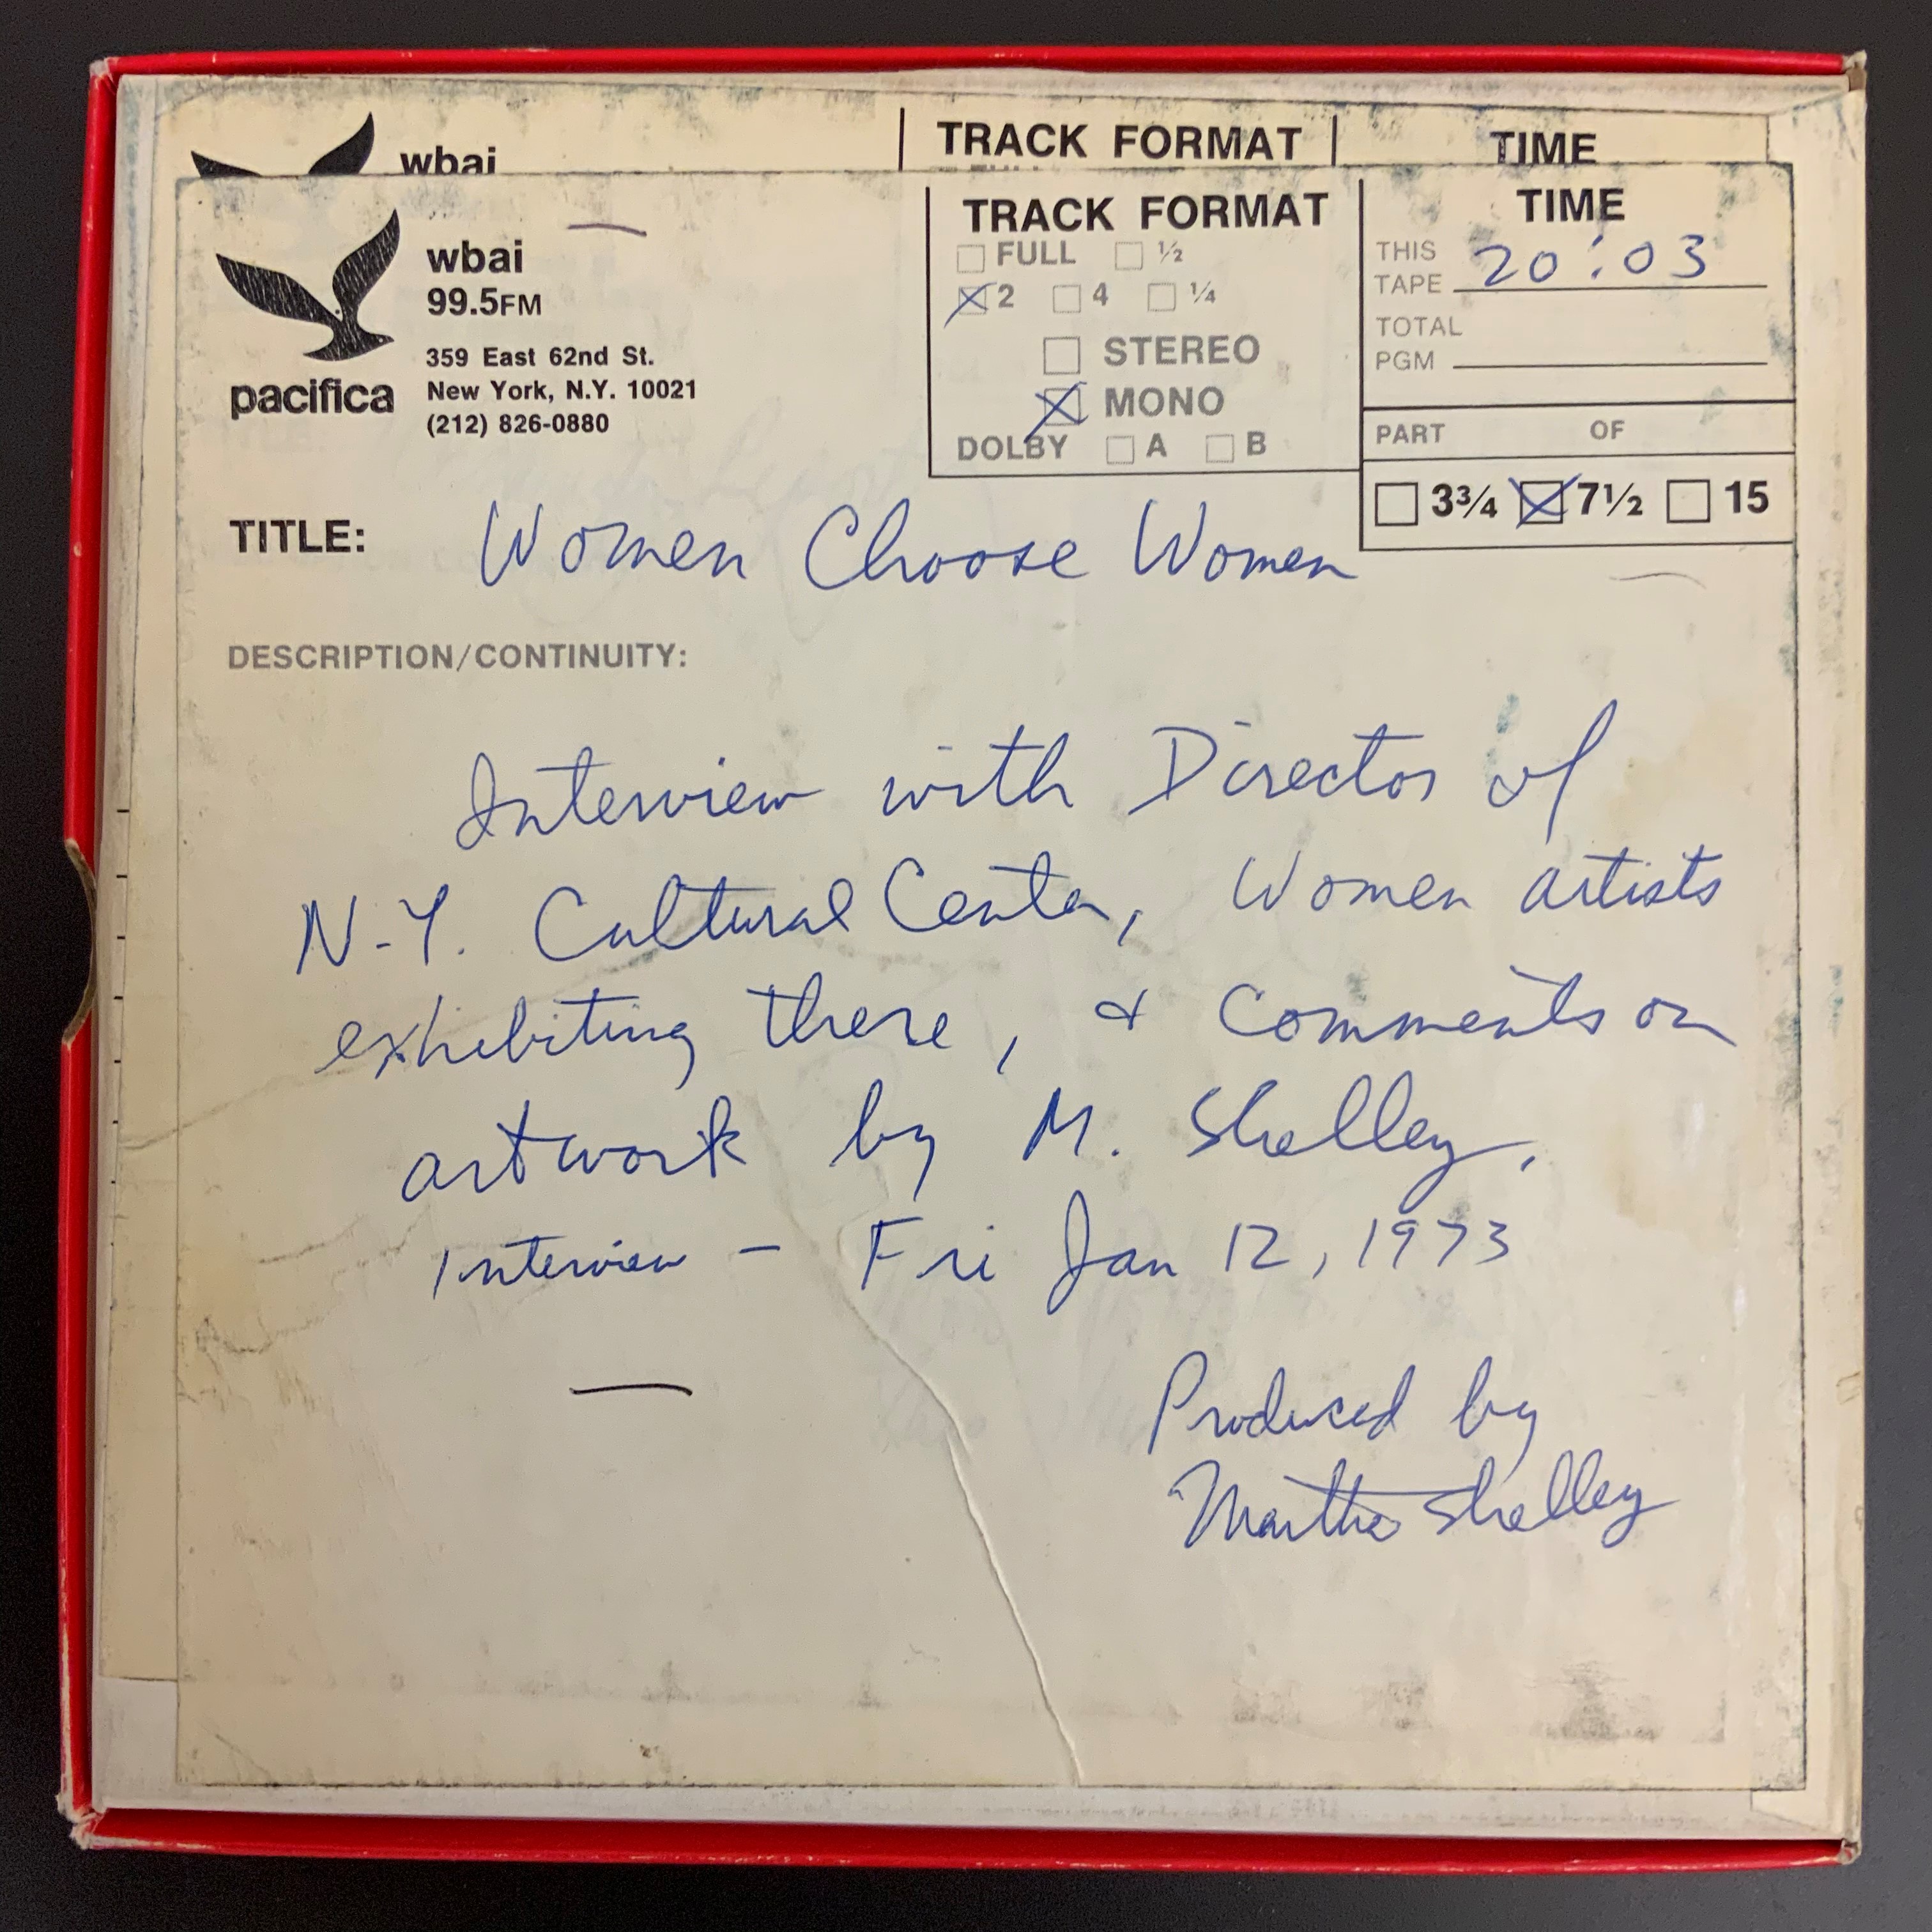 wbai
TRACK FORMAT
TIME
wbai
99.5FM
359 East 62nd St.
New York, N.Y. 10021
(212) 826-0880
pacifica
TRACK FORMAT
FULL ½
2 4 ¼
STEREO
MONO
DOLBY A B
TIME
THIS
TAPE 20:03
TOTAL
PGM
PART OF
3¾ 7½ 15
TITLE: Women Choose Women
DESCRIPTION/CONTINUITY:
Interview with Director of
N.Y. Cultural Center, Women artists
exhibiting there, & Comments on
artwork by M. Shelley.
Interview - Fri Jan 12, 1973
Produced by
Martha Shelley